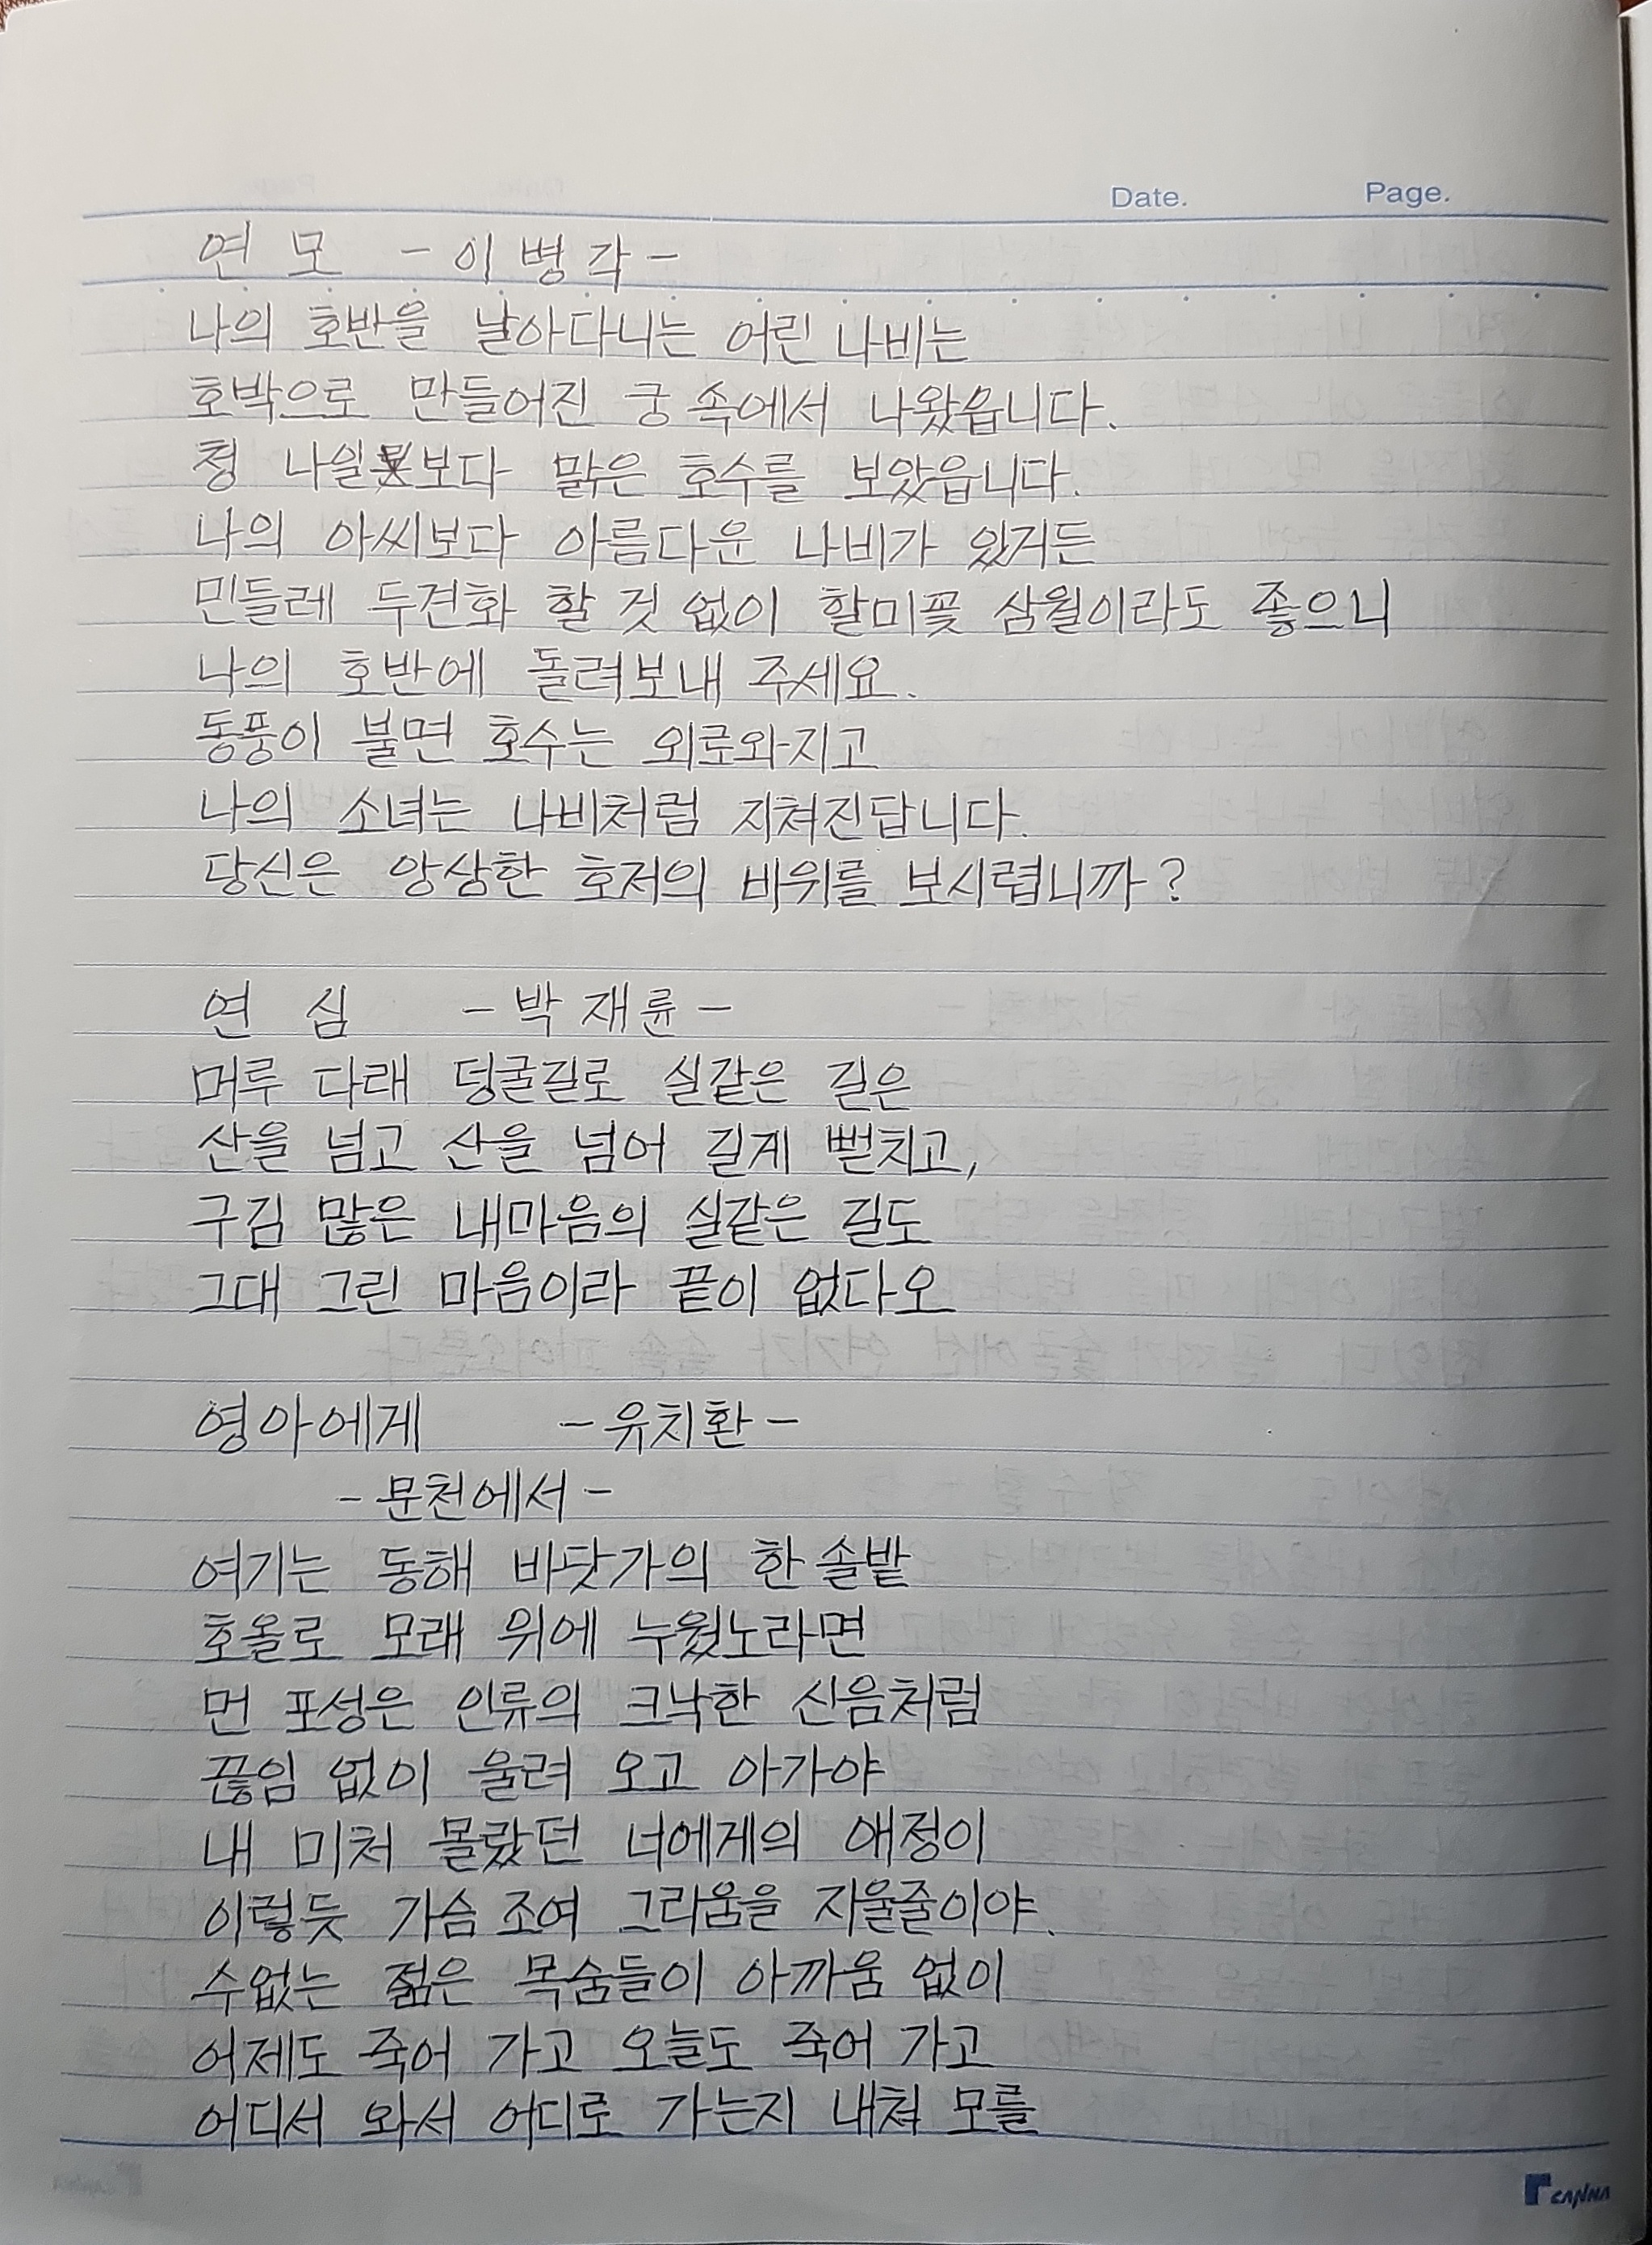 Date. Page.
연 모 - 이 병 각 -
나의 호반을 날아다니는 어린 나비는
호박으로 만들어진 궁 속에서 나왔읍니다.
청 나일보다 맑은 호수를 보았읍니다.
나의 아씨보다 아름다운 나비가 있거든
민들레 두견화 할 것 없이 할미꽃 삼월이라도 좋으니
나의 호반에 돌려보내 주세요.
동풍이 불면 호수는 외로와지고
나의 소녀는 나비처럼 지쳐진답니다.
당신은 앙상한 호저의 바위를 보시렵니까?
연 심 - 박 재륜 -
머루 다래 덩굴길로 실같은 길은
산을 넘고 산을 넘어 길게 뻗치고,
구김 많은 내마음의 실같은 길도
그대 그린 마음이라 끝이 없다오
영아에게 - 유치환 -
- 문천에서 -
여기는 동해 바닷가의 한 솔밭
호올로 모래 위에 누웠노라면
먼 포성은 인류의 크낙한 신음처럼
끊임 없이 울려 오고 아가야
내 미처 몰랐던 너에게의 애정이
이렇듯 가슴 조여 그리움을 자울줄이야.
수없는 젊은 목숨들이 아까움 없이
어제도 죽어 가고 오늘도 죽어 가고
어디서 와서 어디로 가는지 내쳐 모를
CANNA